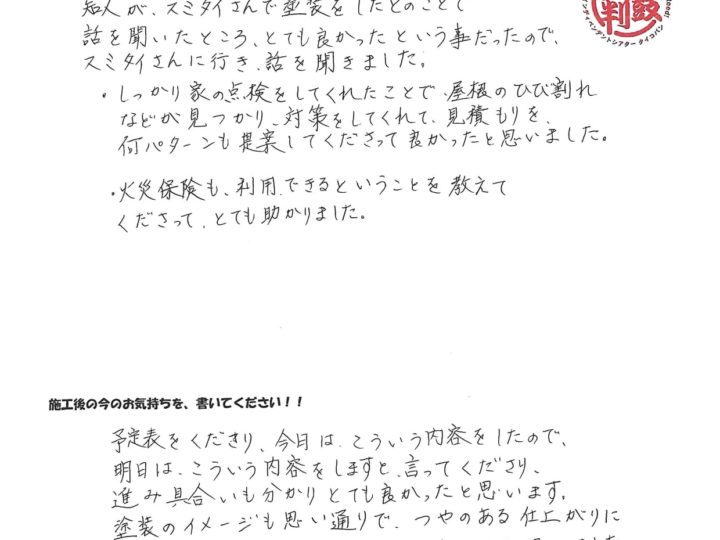 知人が、スミタイさんで塗装をしたとのことで
話を聞いたところ、とても良かったという事だったので、
スミタイさんに行き、話を聞きました。
・しっかり家の点検をしてくれたことで、屋根のひび割れ
などが見つかり、対策をしてくれて、見積もりを、
何パターンも提案してくださって良かったと思いました。
・火災保険も、利用できるということを教えて
くださって、とても助かりました。
施工後の今のお気持ちを、書いてください！！
予定表をくださり、今日は、こういう内容をしたので、
明日は、こういう内容をしますと、言ってくださり、
進み具合いも分かりとても良かったと思います。
塗装のイメージも思い通りで、つやのある仕上がりに